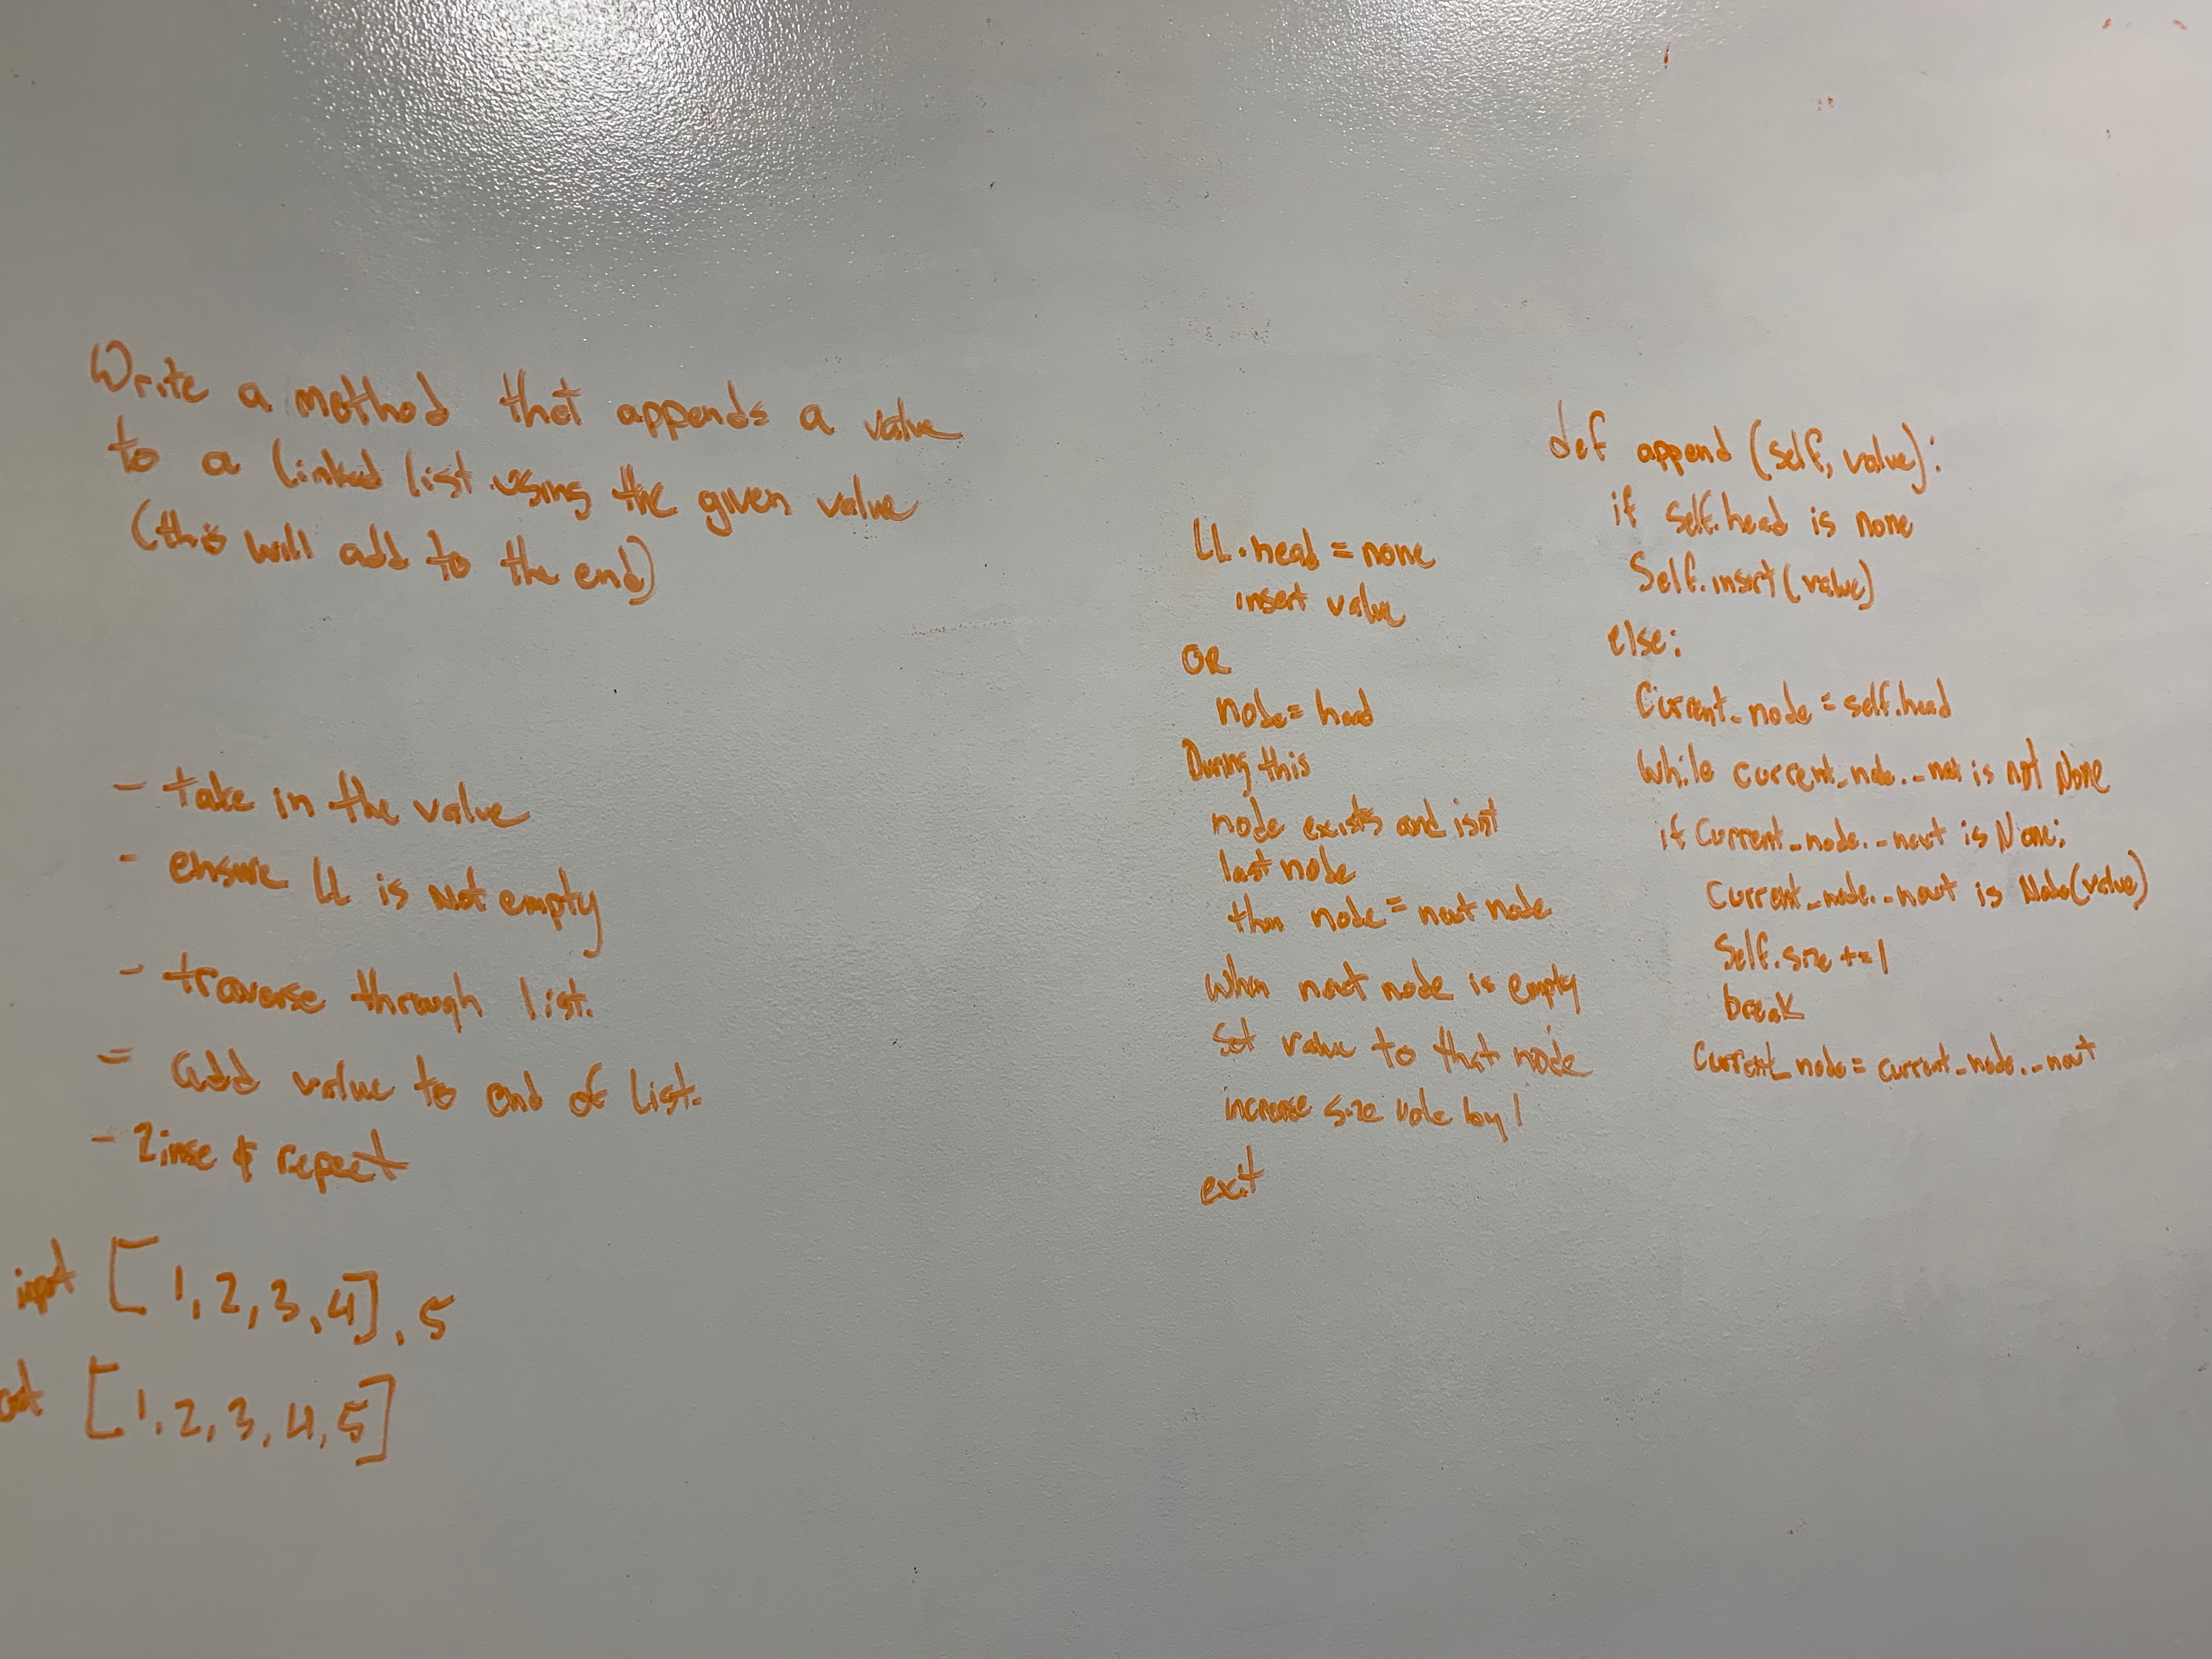 Write a method that appends a value
to a linked list using the given value
(this will add to the end)
- take in the value
- ensure LL is Not empty
- traverse through list.
= add value to end of list.
- Rinse & repeat
input [1,2,3,4], 5
out [1,2,3,4,5]
LL.head = none
insert value
OR
node = head
During this
node exists and isnt
last node
than node = next node
When next node is empty
Set value to that node
increase size vale by 1
exit
def append (self, value):
if self.head is none
Self.insert(value)
else:
Current_node = self.head
While current_node._next is not None
if Current_node._next is None:
Current_node._next is Node(value)
Self.size += 1
break
Current_node = current_node._next